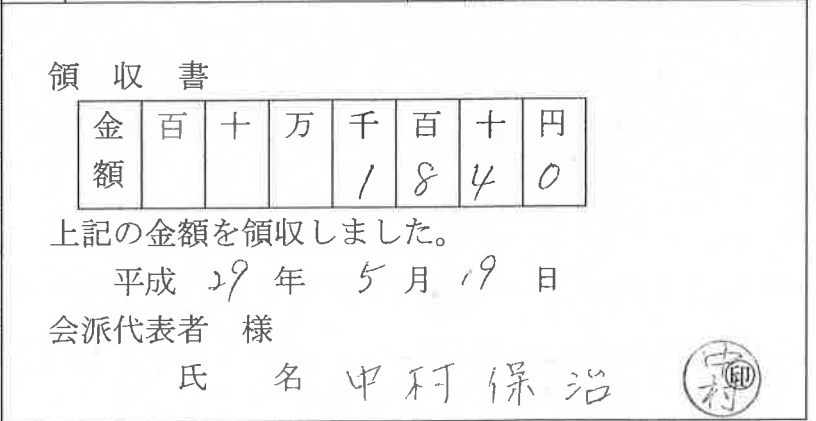 領 収 書
金額 百 十 万 千 百 十 円
1 8 4 0
上記の金額を領収しました。
平成 29 年 5 月 19 日
会派代表者 様
氏 名 中村保治
中村
印